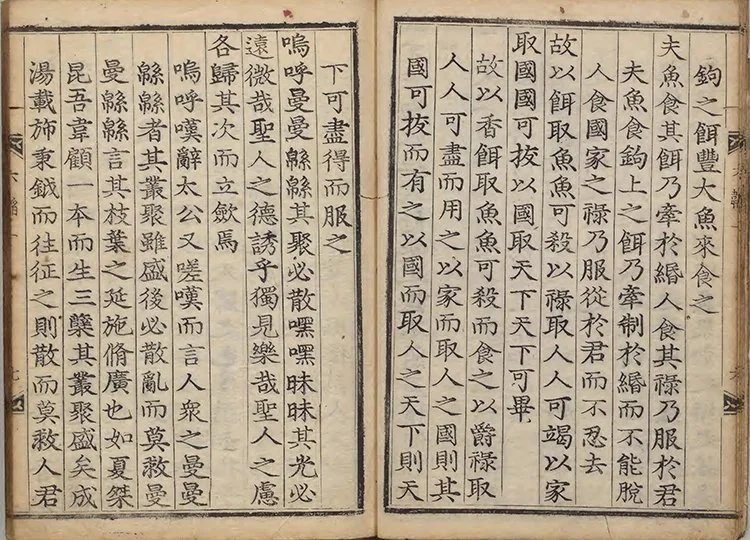 鉤之餌豐大魚來食之
夫魚食其餌乃牽於緡人食其祿乃服於君
夫魚食鉤上之餌乃牽制於緡而不能脫
人食國家之祿乃服從於君而不忍去
故以餌取魚魚可殺以祿取人人可竭以家
取國國可拔以國取天下天下可畢
故以香餌取魚魚可殺而食之以爵祿取
人人可盡而用之以家而取人之國則其
國可拔而有之以國而取人之天下則天
下可盡得而服之
嗚呼曼曼緜緜其聚必散嘿嘿昧昧其光必
遠微哉聖人之德誘乎獨見樂哉聖人之慮
各歸其次而立斂焉
嗚呼嘆辭太公又嗟嘆而言人衆之曼曼
緜緜者其叢聚雖盛後必散亂而莫救曼
曼緜緜言其枝葉之延施脩廣也如夏桀
昆吾韋顧一本而生三孽其叢聚盛矣成
湯載斾秉鉞而往征之則散而莫救人君
六韜